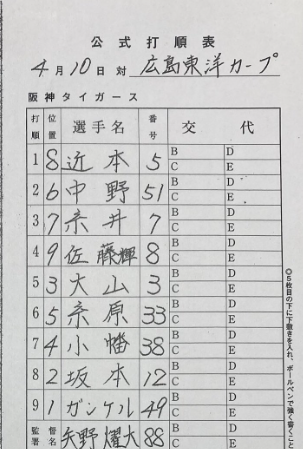 公式打順表
4月10日 対 広島東洋カープ
阪神タイガース
打順 位置 選手名 番号 交代
1 8 近本 5 B D C E
2 6 中野 51 B D C E
3 7 糸井 7 B D C E
4 9 佐藤輝 8 B D C E
5 3 大山 3 B D C E
6 5 糸原 33 B D C E
7 4 小幡 38 B D C E
8 2 坂本 12 B D C E
9 1 ガンケル 49 B D C E
監督署名 矢野燿大 88 B D C E
◎5枚目の下に下敷きを入れ、ボールペンで強く書くこと